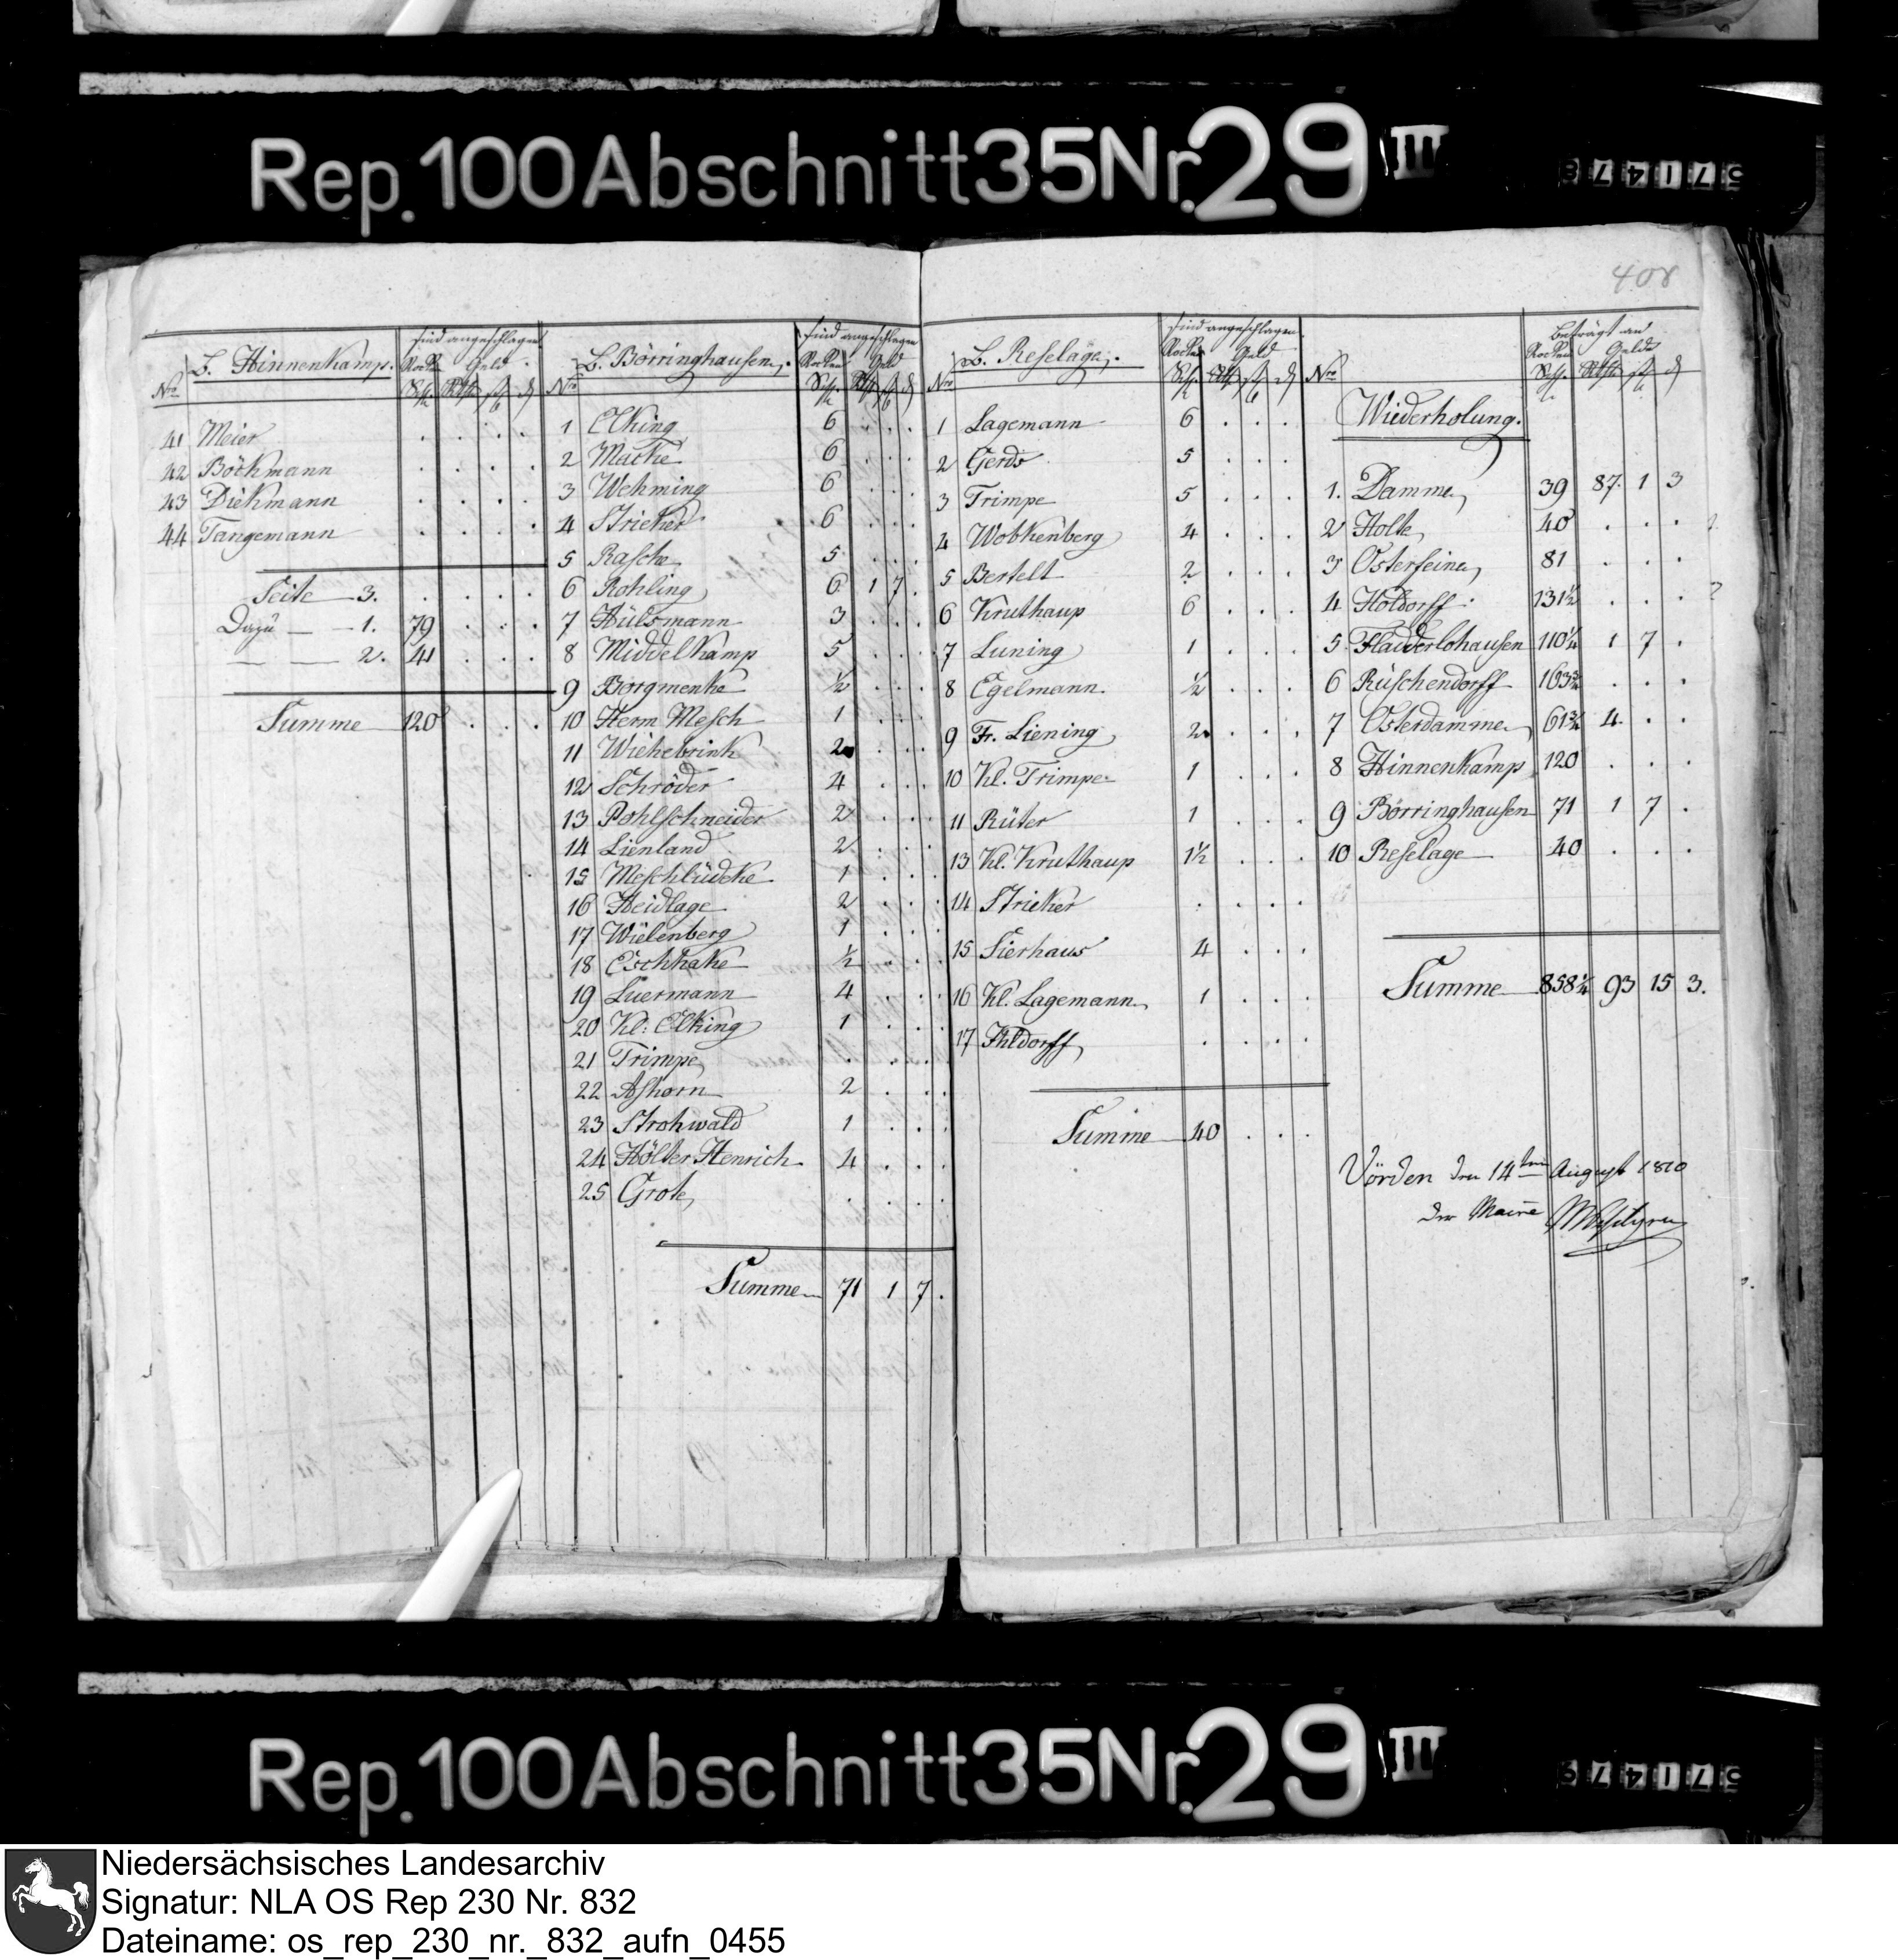 Rep. 100 Abschnitt 35 Nr. 29 III
571473
408
B. Hinnenkamp.
sind angeschlagen
Rocken Geld
Nro Sch. Rthlr ß d
41 Meier . . . .
42 Böckmann . . . .
43 Diekmann . . . .
44 Tangemann . . . .
Seite 3. . . . .
Dazu — 1. 79 . . .
— — 2. 41 . . .
Summe 120 . . .
B. Börringhausen.
sind angeschlagen
Rocken Geld
Nro Sch. Rthlr ß d
1 Elking 6 . . .
2 Macke 6 . . .
3 Wehming 6 . . .
4 Stricker 6 . . .
5 Rasche 5 . . .
6 Rohling 6 1 7 .
7 Hülsmann 3 . . .
8 Middelkamp 5 . . .
9 Borgmenke ½ . . .
10 Herm Mesch 1 . . .
11 Wiehebrink 2 . . .
12 Schröder 4 . . .
13 Pohlschneider 2 . . .
14 Lienland 2 . . .
15 Meschlüdeke 1 . . .
16 Heidlage 2 . . .
17 Wielenberg 1 . . .
18 Eschhake ½ . . .
19 Luermann 4 . . .
20 Kl: Elking 1 . . .
21 Trimpe . . . .
22 Ashorn 2 . . .
23 Strohwald 1 . . .
24 Hölter Henrich 4 . . .
25 Grote . . . .
Summe 71 1 7 .
B. Reselage.
sind angeschlagen
Rocken Geld
Nro Sch. Rthlr ß d
1 Lagemann 6 . . .
2 Gerds 5 . . .
3 Trimpe 5 . . .
4 Wobkenberg 4 . . .
5 Bertelt 2 . . .
6 Kruthaup 6 . . .
7 Luning 1 . . .
8 Egelmann ½ . . .
9 Fr. Liening 2 . . .
10 Kl. Trimpe 1 . . .
11 Rüter 1 . . .
13 Kl. Kruthaup 1½ . . .
14 Stricker . . . .
15 Sierhaus 4 . . .
16 Kl. Lagemann 1 . . .
17 Ihldorff . . . .
Summe 40 . . .
Beträgt an
Rocken Gelde
Nro Sch. Rthlr ß d
Wiederholung.
1. Damme 39 87. 1 3
2 Holte 40 . . .
3 Osterfeine 81 . . .
4 Holdorff 131½ . . .
5 Fladderlohausen 110¼ 1 7 .
6 Rüschendorff 163¾ . . .
7 Osterdamme 61¾ 4. . .
8 Hinnenkamp 120 . . .
9 Börringhausen 71 1 7 .
10 Reselage 40 . . .
Summe 858¼ 93 15 3.
Vörden den 14ten August 1810
Der Maire
Rep. 100 Abschnitt 35 Nr. 29 III
Niedersächsisches Landesarchiv
Signatur: NLA OS Rep 230 Nr. 832
Dateiname: os_rep_230_nr._832_aufn_0455